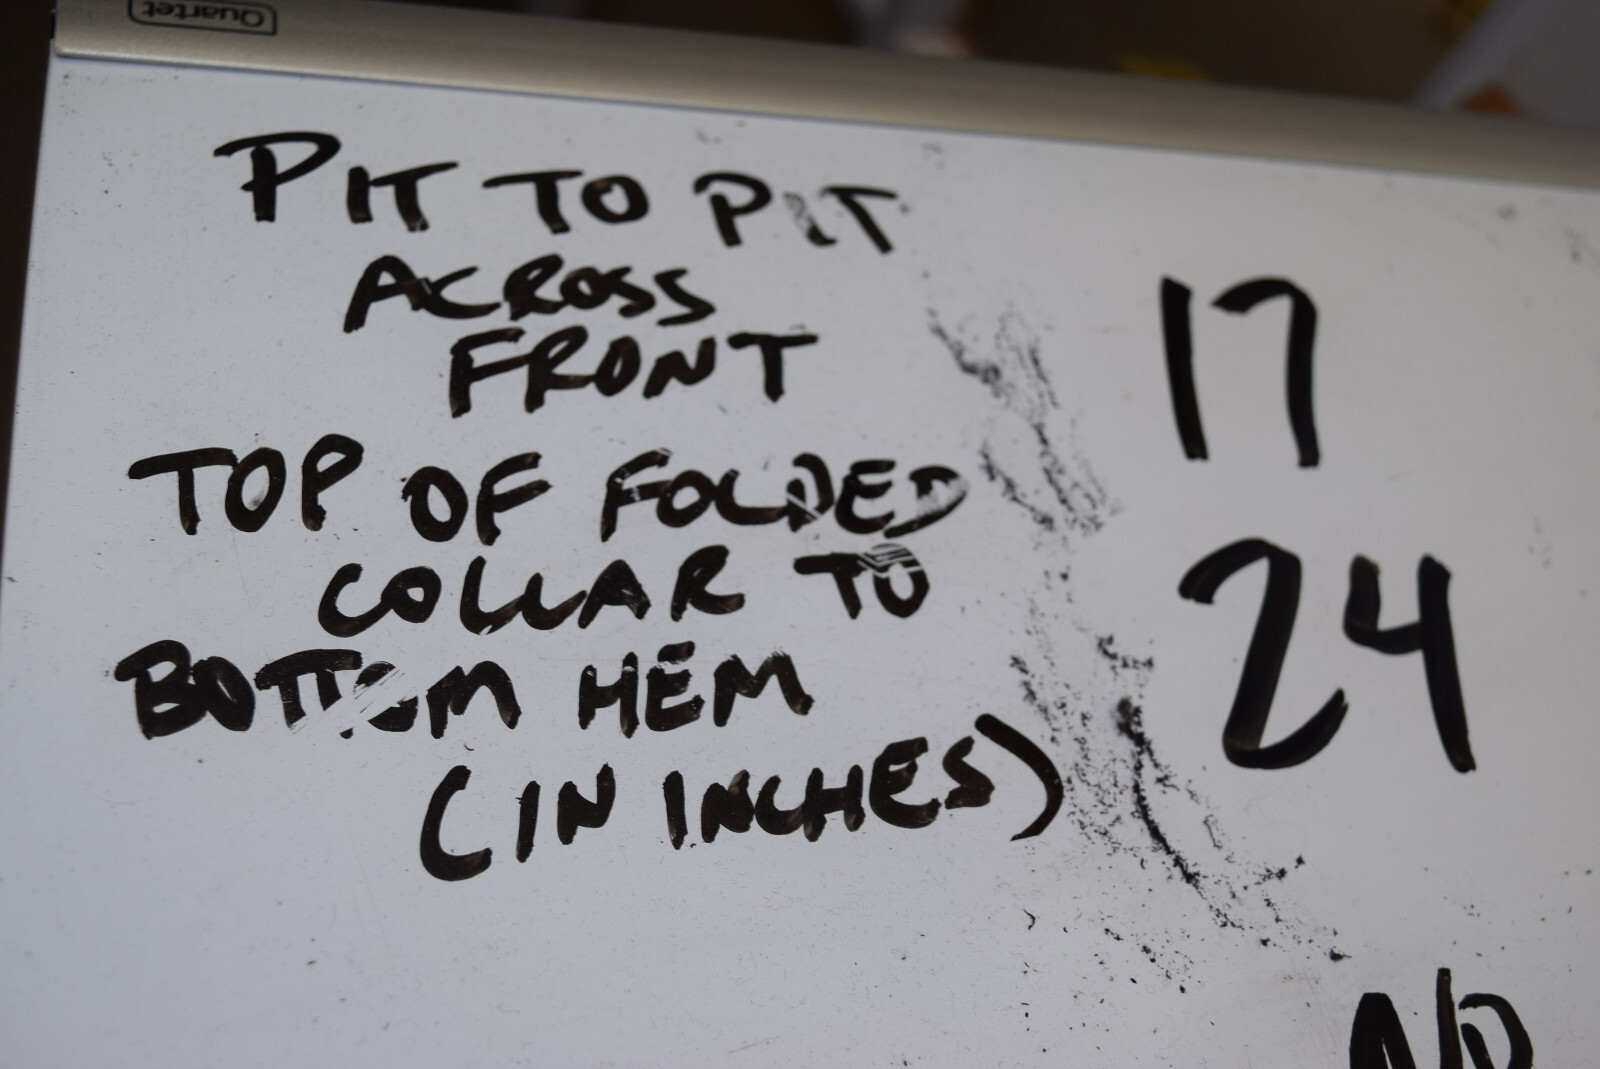 Quartet
PIT TO PIT
ACROSS
FRONT
17
TOP OF FOLDED
COLLAR TO
BOTTOM HEM
(IN INCHES)
24